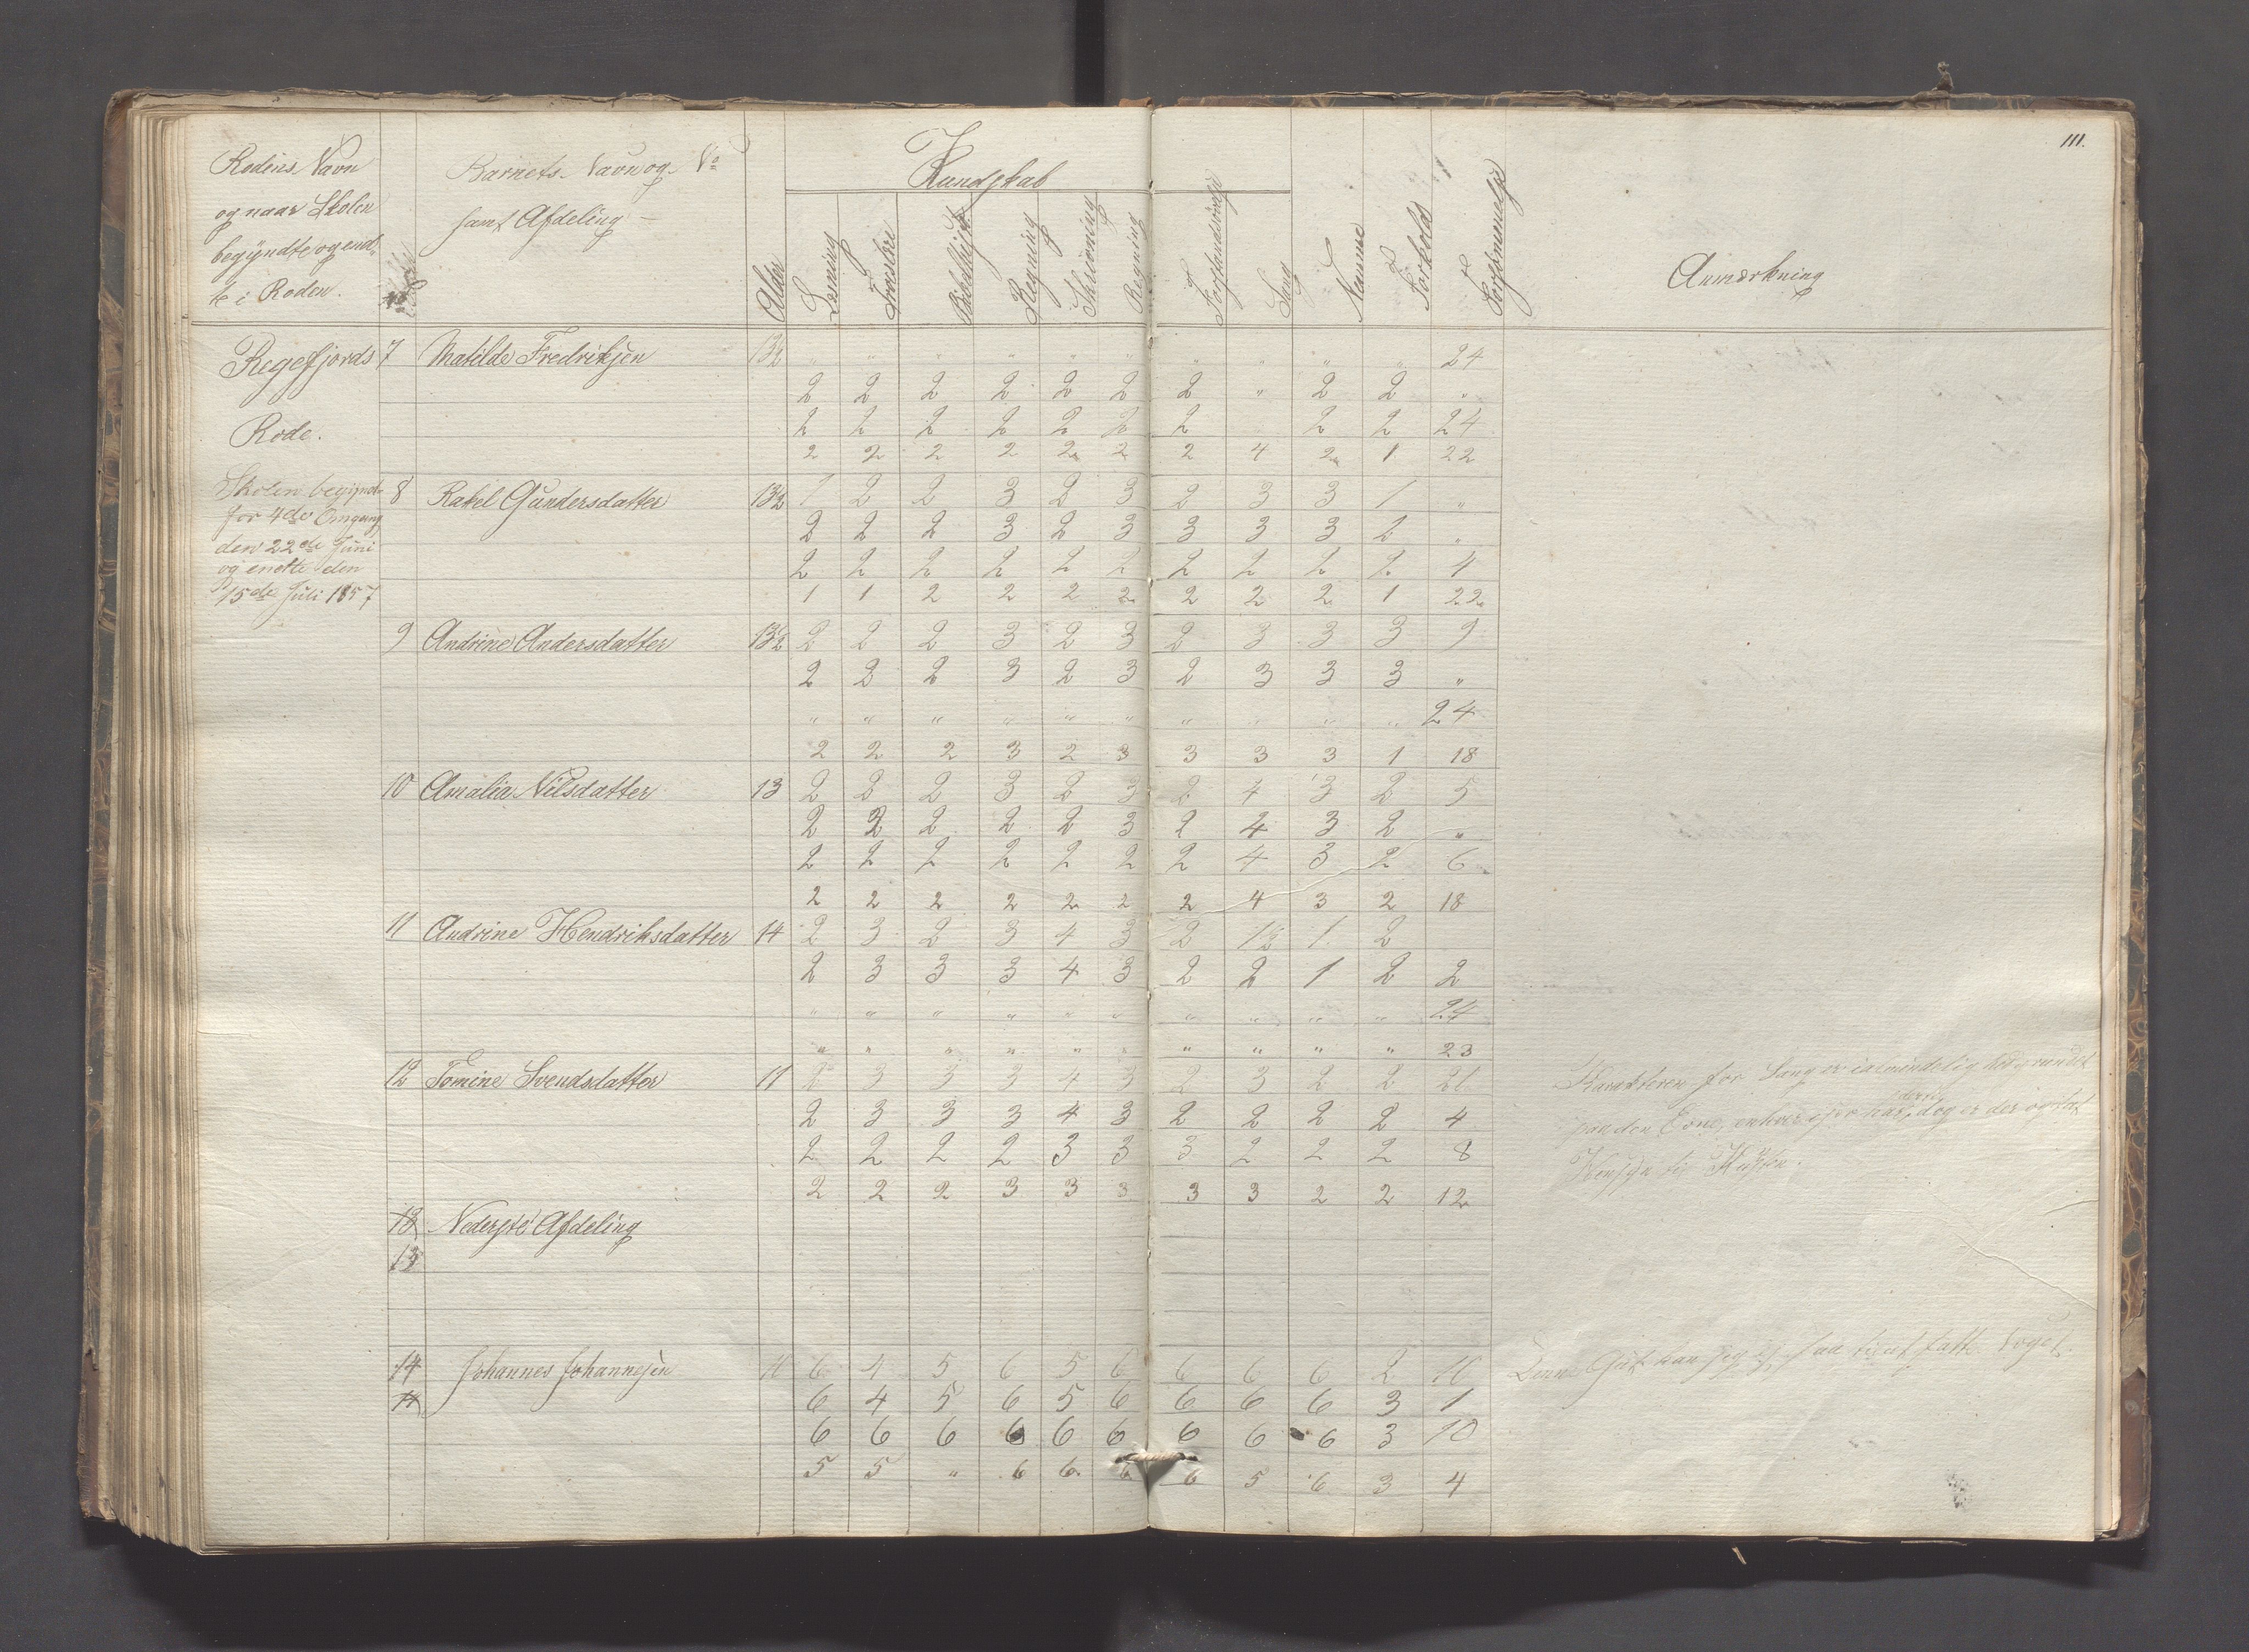 111.
Rodens Navn
og naar Skolen
begÿndte og end-
te i Roden.
Barnets Navn og No
samt Afdeling
Alder
Kundskab
Læsning
Troeslære
Bibelhist.
Regning
Skrivning
Regning
Forstandsøvelse
Sang
Nemme
Forhold
Forsømmelse
Anmærkning
Regefjords 7 Matilde Fredriksen 13½ " " " " " " " " " " 24
2 2 2 2 2 2 2 " 2 2 "
Rode. 2 2 2 2 2 2 2 2 2 24
2 2 2 2 2 2 2 4 2 1 22
Skolen begÿnd- 8 Rakel Gundersdatter 13½ 1 2 2 3 2 3 2 3 3 1 "
for 4de Omgang
den 22de Juni 2 2 2 3 2 3 3 3 3 2 "
og endte den 2 2 2 2 2 2 2 2 2 2 4
15de Juli 1857 1 1 2 2 2 2 2 2 2 1 22
9 Andrine Andersdatter 13½ 2 2 2 3 2 3 2 3 3 3 9
2 2 2 3 2 3 2 3 3 3 "
" " " " " " " " " " 24
2 2 2 3 2 3 3 3 3 1 18
10 Amalia Nilsdatter 13 2 2 2 3 2 3 2 4 3 2 5
2 2 2 2 2 3 2 4 3 2 "
2 2 2 2 2 2 2 4 3 2 6
2 2 2 2 2 2 2 4 3 2 18
11 Andrine Hendriksdatter 14 2 3 2 3 4 3 2 1½ 1 2
2 3 3 3 4 3 2 2 1 2 2
" " " " " " " " " " 24
" " " " " " " " " " 23
12 Tomine Svendsdatter 11 2 3 3 3 4 3 2 3 2 2 21 Karakteren for Sang er ialmindelig begrundet
2 3 3 3 4 3 2 2 2 2 4 paa den Evne, enhver har, dog er der ogsaa
2 2 2 2 3 3 3 2 2 2 8 Hensyn til
2 2 2 3 3 3 3 3 2 2 12
13 Nederste Afdeling
13
14 Johannes Johannesen 10 6 4 5 6 5 6 6 6 6 2 10 Denne Gut kan jeg ej faa til at fatte Noget.
14 6 4 5 6 5 6 6 6 6 3 1
6 6 6 6 6 6 6 6 6 3 10
5 5 " 6 6 6 6 5 6 3 4